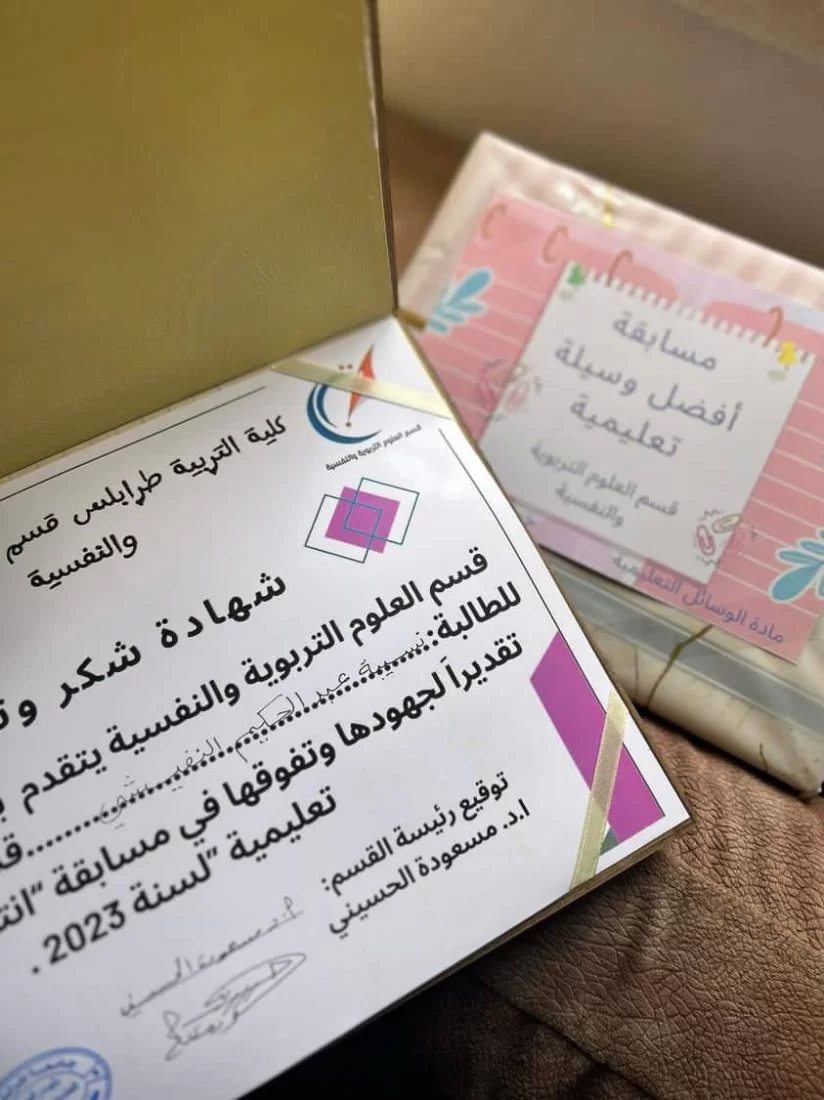 قسم العلوم التربوية والنفسية
كلية التربية طرابلس قسم
والنفسية
شهادة شكر
قسم العلوم التربوية والنفسية يتقدم
للطالبة: نسيبة عبد الحكيم
تقديراً لجهودها وتفوقها في مسابقة
تعليمية "لسنة 2023 .
توقيع رئيسة القسم:
ا.د. مسعودة الحسيني
ا.د. مسعودة الحسيني
مسابقة
أفضل وسيلة
تعليمية
قسم العلوم التربوية
والنفسية
مادة الوسائل التعليمية